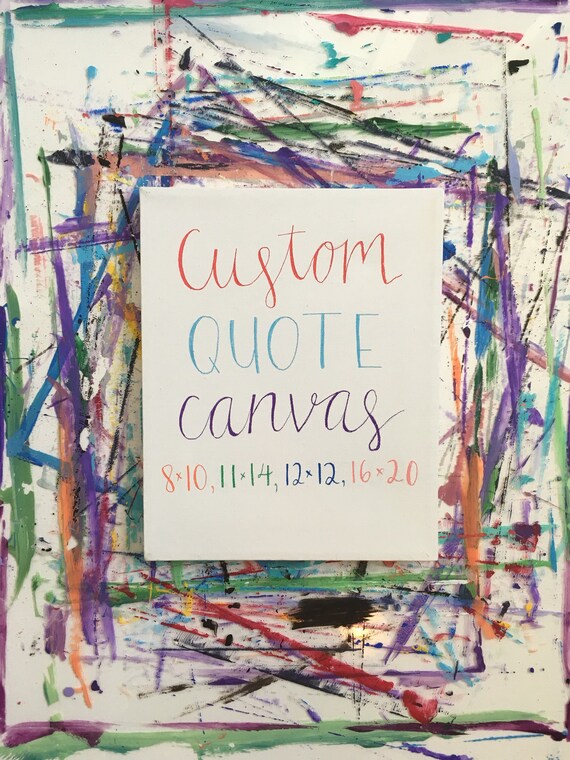 Custom
QUOTE
canvas
8×10, 11×14, 12×12, 16×20